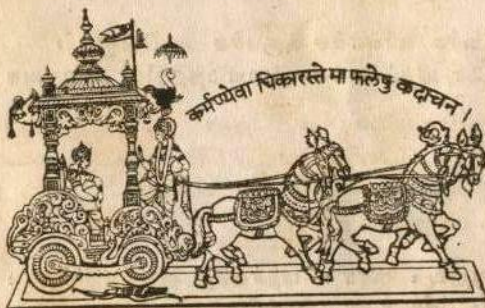 कर्मण्येवा धिकारस्ते मा फलेषु कदाचन ।